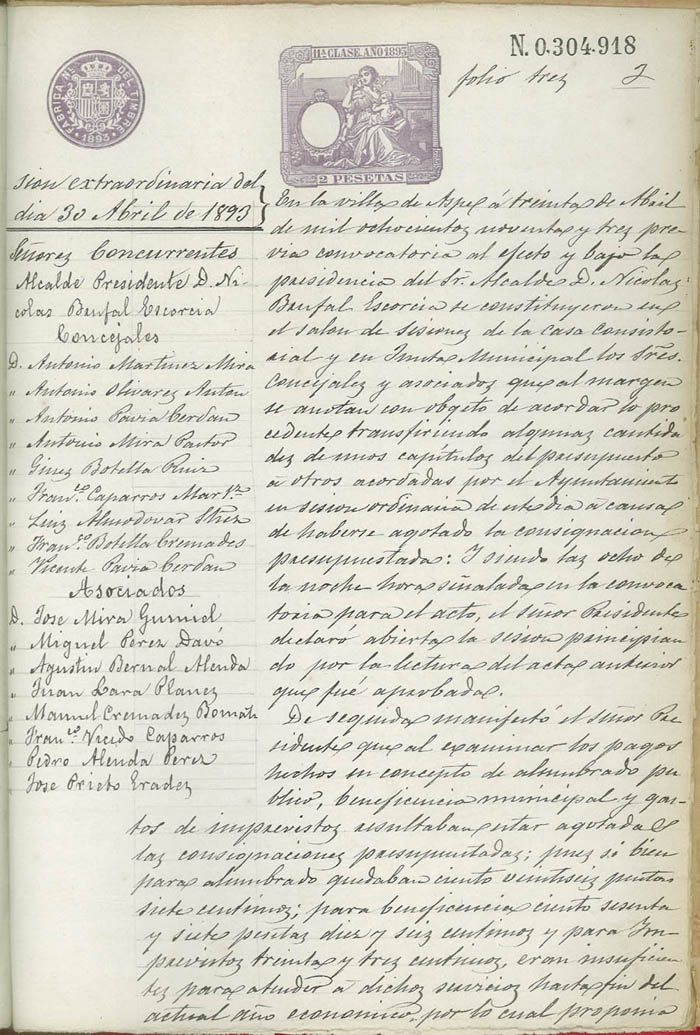 FABRICA NAL DEL TIMBRE
1893
11ª CLASE. AÑO 1893
2 PESETAS
N. 0.304.918
folio trez
sion extraordinaria del
dia 30 Abril de 1893
Señorez Concurrentes
Alcalde Presidente D. Ni-
colas Bonfal Escorcia
Concejales
D. Antonio Martinez Mira
" Antonio Olivarez Anton
" Antonio Pavia Cerdan
" Antonio Mira Pastor
" Ginez Botella Ruiz
" Franco. Caparros Marz.
" Luiz Almodovar
" Franco. Botella Cremades
" Vicente Pavia Cerdan
Asociados
D. Jose Mira Gumiel
" Miguel Perez Davó
" Agustin Bernal Alenda
" Juan Lara Planez
" Manuel Cremadez
" Franco. Vicedo Caparros
" Pedro Alenda Perez
" Jose Prieto Eradez
En la villa de Aspe á treinta de Abril
de mil ochocientos noventa y trez pre-
via convocatoria al efecto y bajo la
presidencia del Sr. Alcalde D. Nicolaz
Bonfal Escorcia se constituyeron en
el salon de sesionez de la casa consisto-
rial y en Junta Municipal los Sres.
Concejalez y asociados que al margen
se anotan con obgeto de acordar lo pro
cedente transfiriendo algunaz cantida
dez de unos capitulos del presupuesto
á otros acordadas por el Ayuntamiento
en sision ordinaria de este dia á causa
de haberse agotado la consignacion
presupuestada: Y siendo laz ocho de
la noche hora señalada en la convoca
toria para el acto, el señor Presidente
declaró abierta la sesion principian
do por la lectura del acta anterior
que fué aprobada.
De seguida manifestó el señor Pre
sidente que al examinar los pagos
hechos en concepto de alumbrado pu
blico, beneficencia municipal y gas-
tos de imprevistoz resultaban estar agotadas
laz consignacionez presupuestadaz; puez si bien
para alumbrado quedaban ciento veintiseiz pesetas
siete centimoz; para beneficencia ciento sesenta
y siete pesetas diez y seiz centimos y para Im-
previstos treinta y trez centimoz, eran insuficien
tez para atender a dichoz servicios hasta fin del
actual año economico, por lo cual proponia